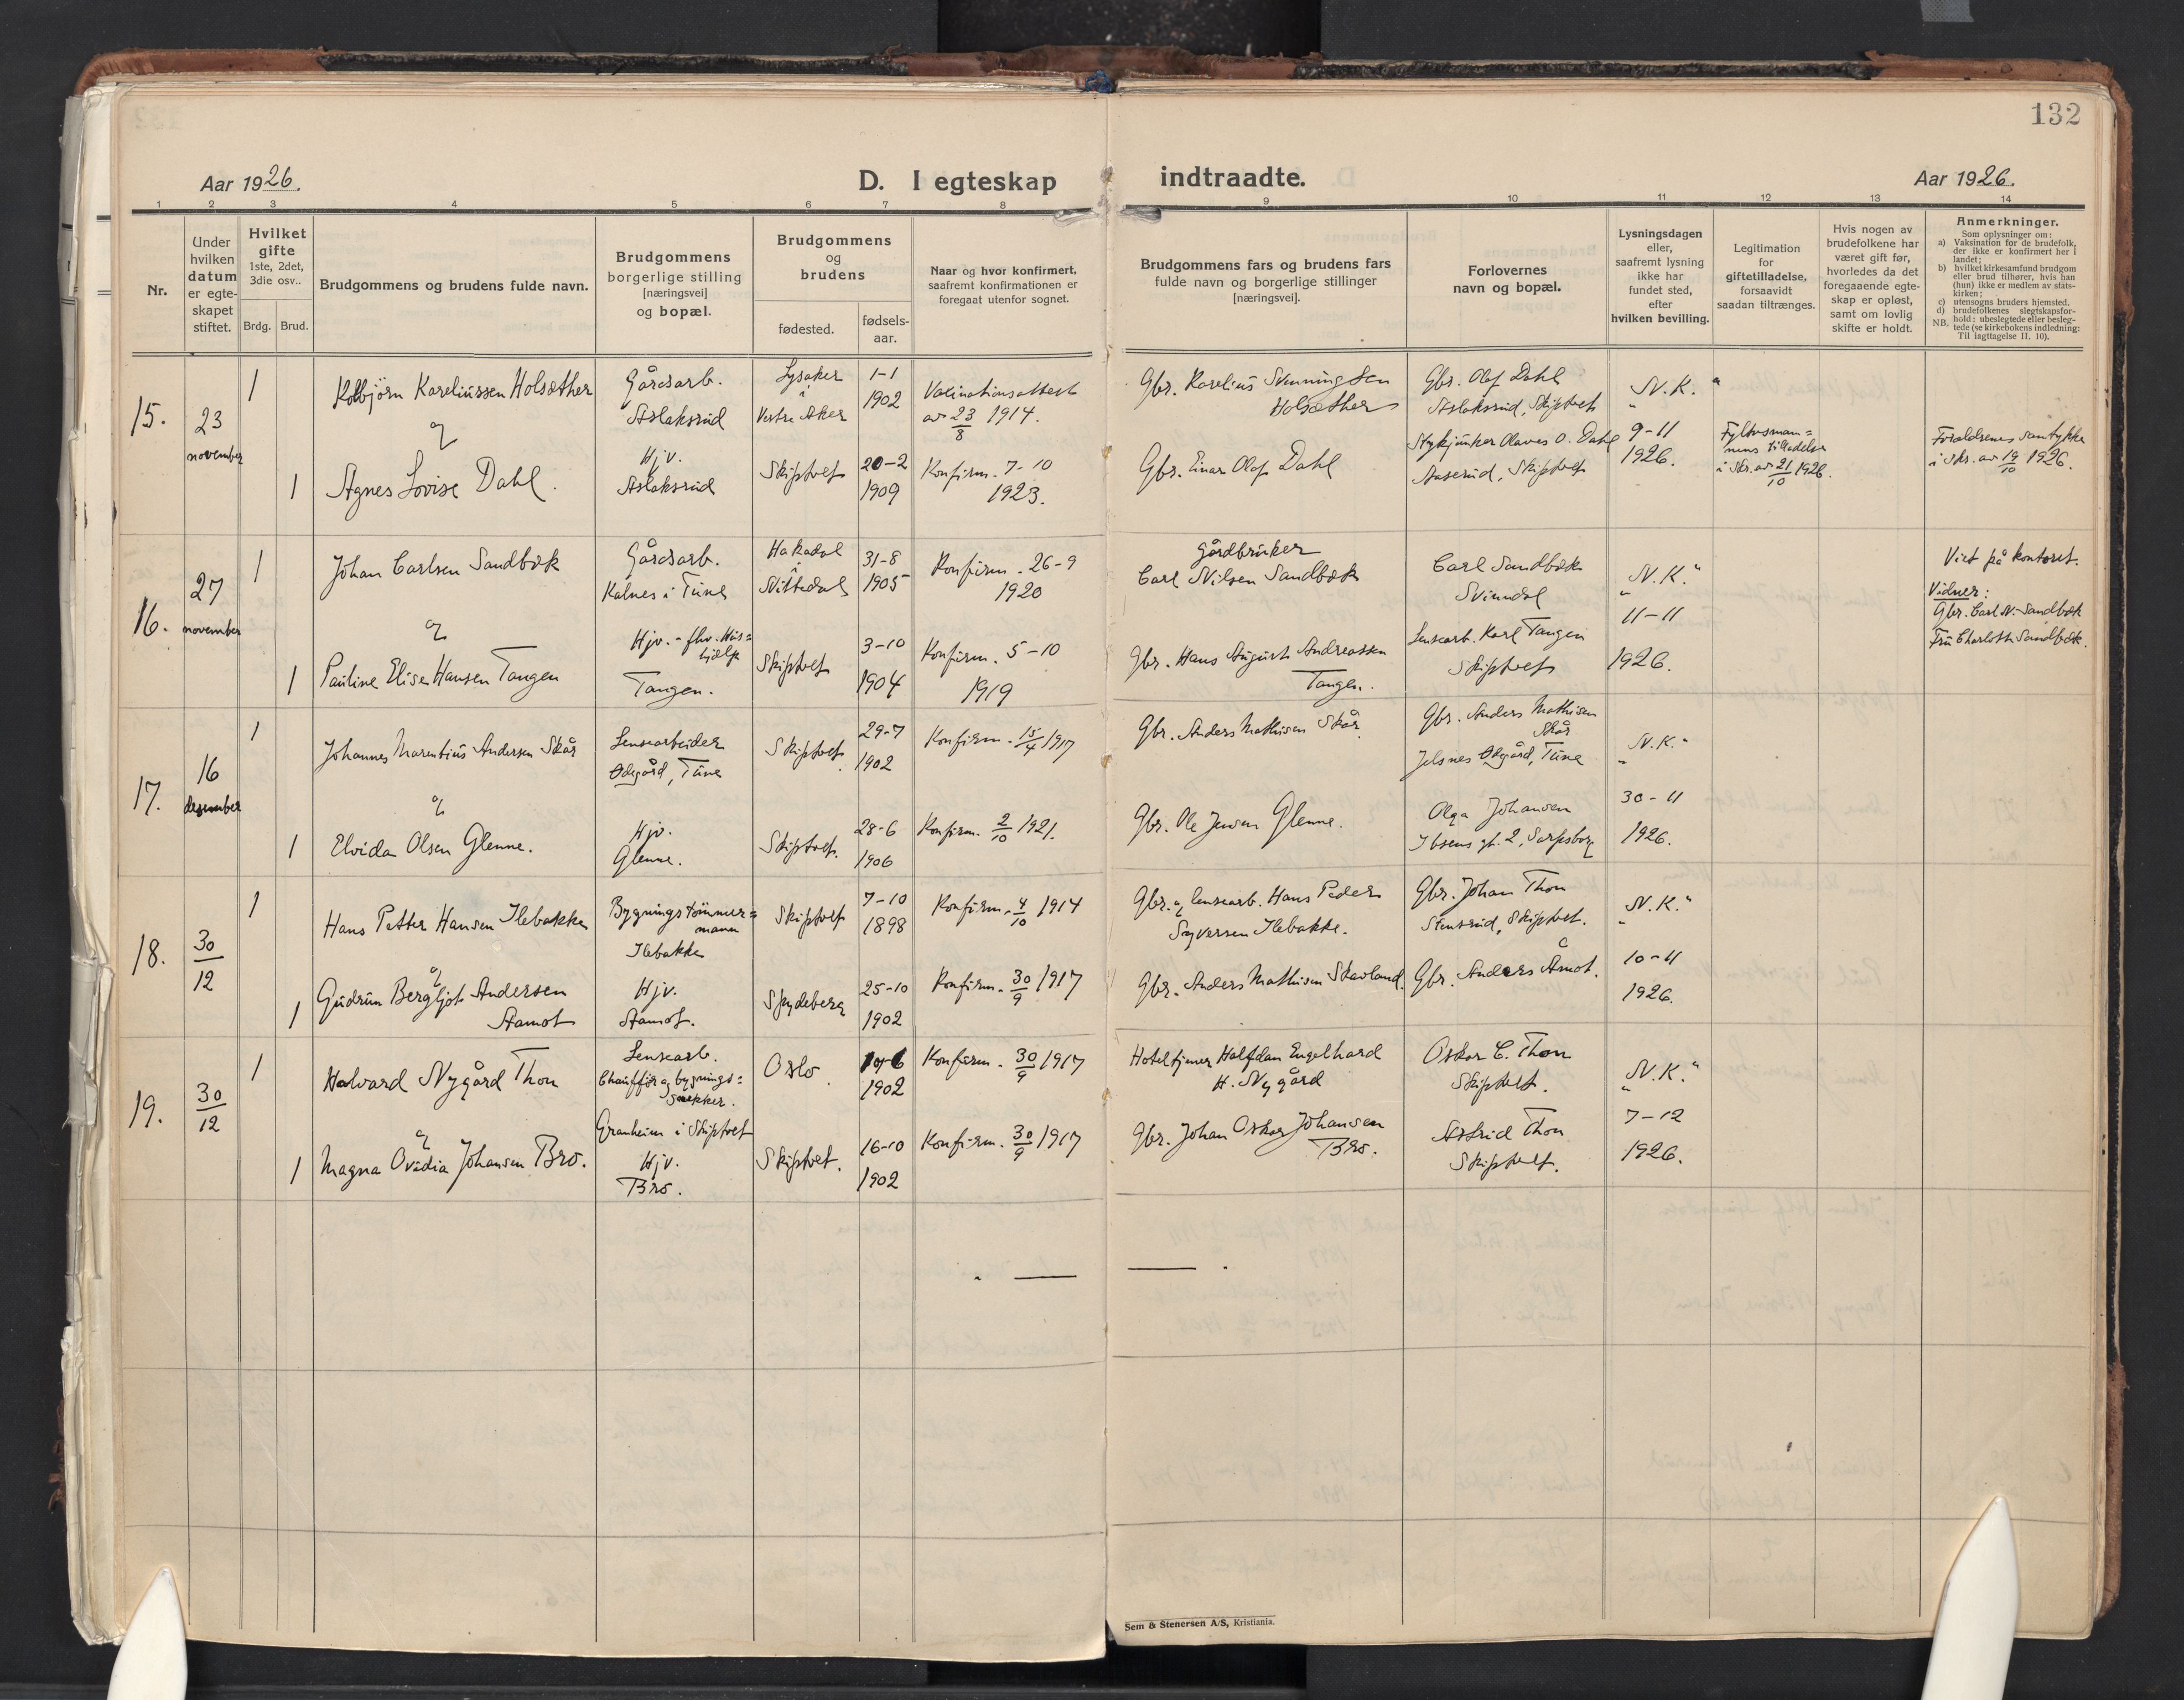 132
Aar 1926.
D. I egteskap indtraadte.
Aar 1926.
1 2 3 4 5 6 7 8 9 10 11 12 13 14
Nr.
Under
hvilken
datum
er egte-
skapet
stiftet.
Hvilket
gifte
1ste, 2det,
3die osv..
Brdg. Brud.
Brudgommens og brudens fulde navn.
Brudgommens
borgerlige stilling
[næringsvei]
og bopæl.
Brudgommens
og
brudens
fødested.
fødsels-
aar.
Naar og hvor konfirmert,
saafremt konfirmationen er
foregaat utenfor sognet.
Brudgommens fars og brudens fars
fulde navn og borgerlige stillinger
[næringsvei].
Forlovernes
navn og bopæl.
Lysningsdagen
eller,
saafremt lysning
ikke har
fundet sted,
efter
hvilken bevilling.
Legitimation
for
giftetilladelse,
forsaavidt
saadan tiltrænges.
Hvis nogen av
brudefolkene har
været gift før,
hvorledes da det
foregaaende egte-
skap er opløst,
samt om lovlig
skifte er holdt.
Anmerkninger.
Som oplysninger om:
a) Vaksination for de brudefolk,
der ikke er konfirmert her i
landet;
b) hvilket kirkesamfund brudgom
eller brud tilhører, hvis han
(hun) ikke er medlem av stats-
kirken;
c) utensogns bruders hjemsted.
d) brudefolkenes slegtskapsfor-
hold: ubeslegtede eller besleg-
NB. tede (se kirkebokens indledning:
Til iagttagelse II. 10).
15.
23
november
1
Kolbjörn Kareliussen Holsæther
og
1
Agnes Lovise Dahl.
Gårdsarb.
Aslaksrud
Hjv.
Aslaksrud
Lysaker
i
Vestre Aker
Skiptvet
1-1
1902
20-2
1909
Vaccinationsattest
av 23/8 1914.
Konfirm. 7-10
1923.
Gbr. Karelius Svenningsen
Holsæther
Gbr. Einar Olaf Dahl
Gbr. Olaf Dahl
Aslaksrud, Skiptvet
Olaves O. Dahl
Aaserud, Skiptvet
"N. K."
9-11
1926.
Fylkesman=
nens tilladelse
i skr. av 21/10 1926.
Forældrenes samtykke
i skr. av 19/10 1926.
16.
27
november
1
Johan Carlsen Sandbæk
og
1
Pauline Elise Hansen Tangen
Gårdsarb.
Kalnes i Tune
Hjv. - fhv. Hus=
hjælp
Tangen.
Hakadal
i
Nittedal
Skiptvet
31-8
1905
3-10
1904
Konfirm. 26-9
1920
Konfirm. 5-10
1919
Gårdbruker
Carl Nilsen Sandbæk
Gbr. Hans August Andreassen
Tangen.
Carl Sandbæk
Svinndal
Lensearb. Karl Tangen
Skiptvet
"N. K."
11-11
1926.
Viet på kontoret.
Vidner:
Gbr. Carl N. Sandbæk
Fru Charlotte Sandbæk.
17.
16
desember
1
Johannes Marentius Andersen Skår
og
1
Elvida Olsen Glenne.
Lensearbeider
Ødegård, Tune
Hjv.
Glenne.
Skiptvet.
Skiptvet.
29-7
1902
28-6
1906
Konfirm. 15/4 1917
Konfirm. 2/10 1921.
Gbr. Anders Mathisen Skår
Gbr. Ole Jensen Glenne.
Gbr. Anders Mathisen
Skår
Jelsnes Ødegård, Tune
Olga Johansen
Ibsens gt. 2, Sarpsborg
"N. K."
30-11
1926.
18.
30/12
1
Hans Petter Hansen Ilebakke
og
1
Gudrun Bergljot Andersen
Aamot
Bygningstömmer=
mann
Ilebakke
Hjv.
Aamot.
Skiptvet
Spydeberg
7-10
1898
25-10
1902
Konfirm. 4/10 1914
Konfirm. 30/9 1917
Gbr. og lensearb. Hans Peder
Syversen Ilebakke.
Gbr. Anders Mathisen Skavland.
Gbr. Johan Thon
Stensrud, Skiptvet.
Gbr. Anders Åmot.
"N. K."
10-11
1926.
19.
30/12
1
Halvard Nygård Thon
og
1
Magna Ovidia Johansen Bro.
Lensearb.
Chauffør og bygnings=
snekker.
Granheim i Skiptvet
Hjv.
Bro.
Oslo
Skiptvet.
1902
16-10
1902
Konfirm. 30/9 1917
Konfirm. 30/9 1917
Hoteltjener Halfdan Engelhard
H. Nygård
Gbr. Johan Oskar Johansen
Bro.
Oskar C. Thon
Skiptvet.
Astrid Thon
Skiptvet.
"N. K."
7-12
1926.
Sem & Stenersen A/S, Kristiania.